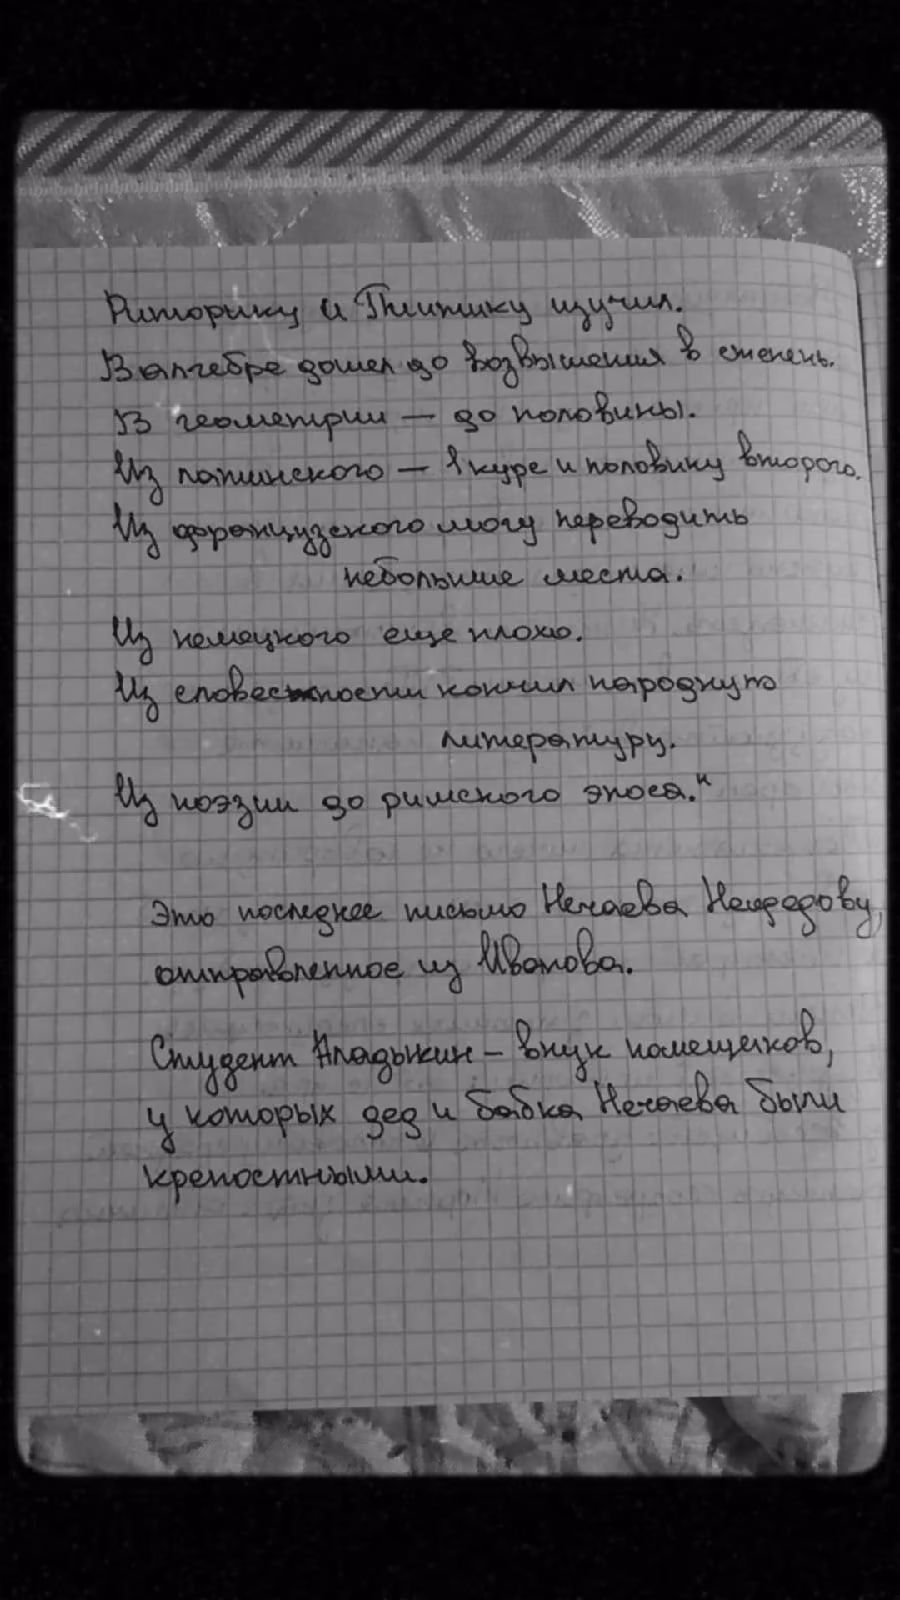 Риторику и Пиитику изучил.
В алгебре дошел до возвышения в степень.
В геометрии — до половины.
Из латинского — 1 курс и половину второго.
Из французского могу переводить
небольшие места.
Из немецкого еще плохо.
Из словесности кончил народную
литературу.
Из поэзии до римского эпоса."
Это последнее письмо Нечаева Нефедову,
отправленное из Иванова.
Студент Аладыкин – внук помещиков,
у которых дед и бабка Нечаева были
крепостными.